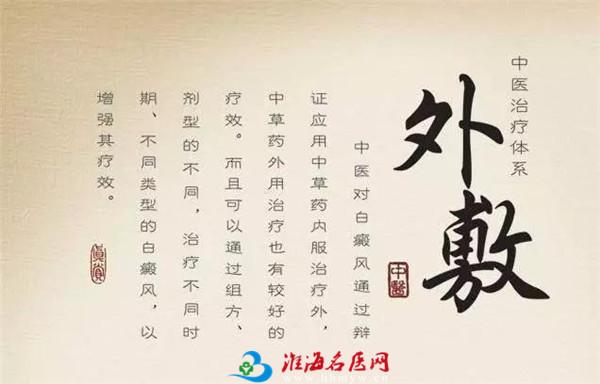 中医治疗体系
外敷
中医
中医对白癜风通过辩
证应用中草药内服治疗外，
中草药外用治疗也有较好的
疗效。而且可以通过组方、
剂型的不同，治疗不同时
期、不同类型的白癜风，以
增强其疗效。
淮海名医网
www.hhmyw.cn